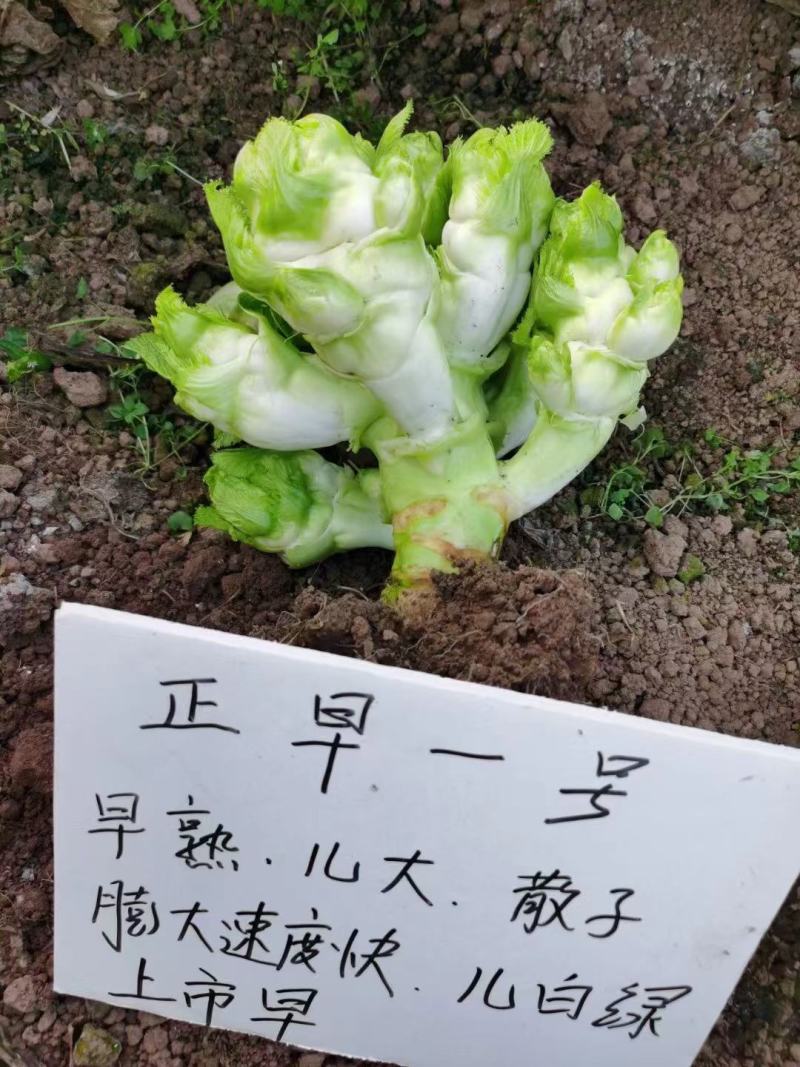 正早一号
早熟.儿大.散子
膨大速度快.儿白绿
上市早